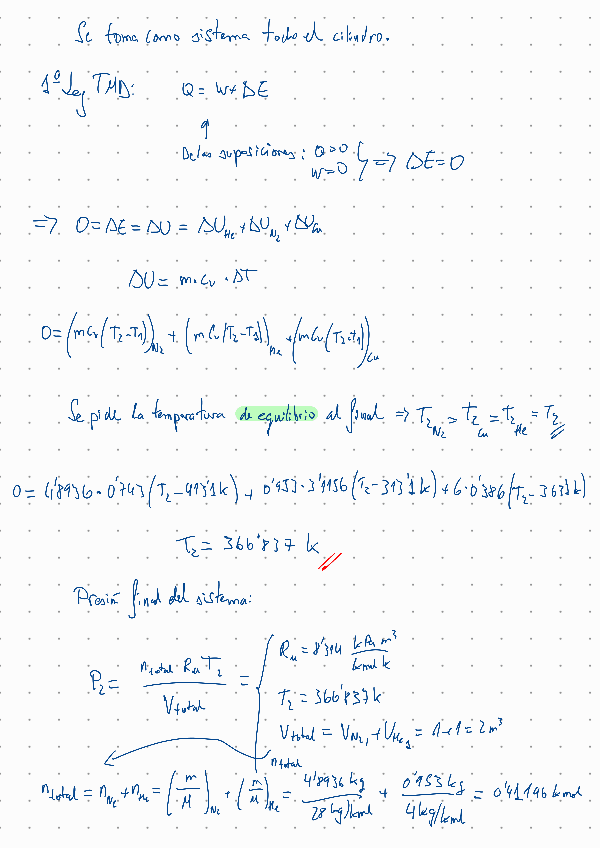 Se toma como sistema todo el cilindro.
1º Ley TMD: Q = W + ΔE
De las suposiciones: Q=0 W=0 } => ΔE=0
=> 0 = ΔE = ΔU = ΔU_He + ΔU_N2 + ΔU_Cu
ΔU = m·Cv·ΔT
0 = (m Cv (T2-T1))_N2 + (m Cv (T2-T1))_He + (m Cv (T2-T1))_Cu
Se pide la temperatura de equilibrio al final => T2_N2 = T2_Cu = T2_He = T2
0 = 4'8936·0'743 (T2-413'1k) + 0'953·3'1156 (T2-313'1k) + 6·0'386 (T2-363'1k)
T2 = 366'837 k
Presión final del sistema:
P2 = n_total·Ru T2 / V_total =
Ru = 8'314 kPa m³ / kmol k
T2 = 366'837 k
V_total = V_N2,1 + V_He,1 = 1+1 = 2 m³
n_total
n_total = n_N2 + n_He = (m/M)_N2 + (m/M)_He = 4'8936 kg / 28 kg/kmol + 0'953 kg / 4 kg/kmol = 0'41196 kmol